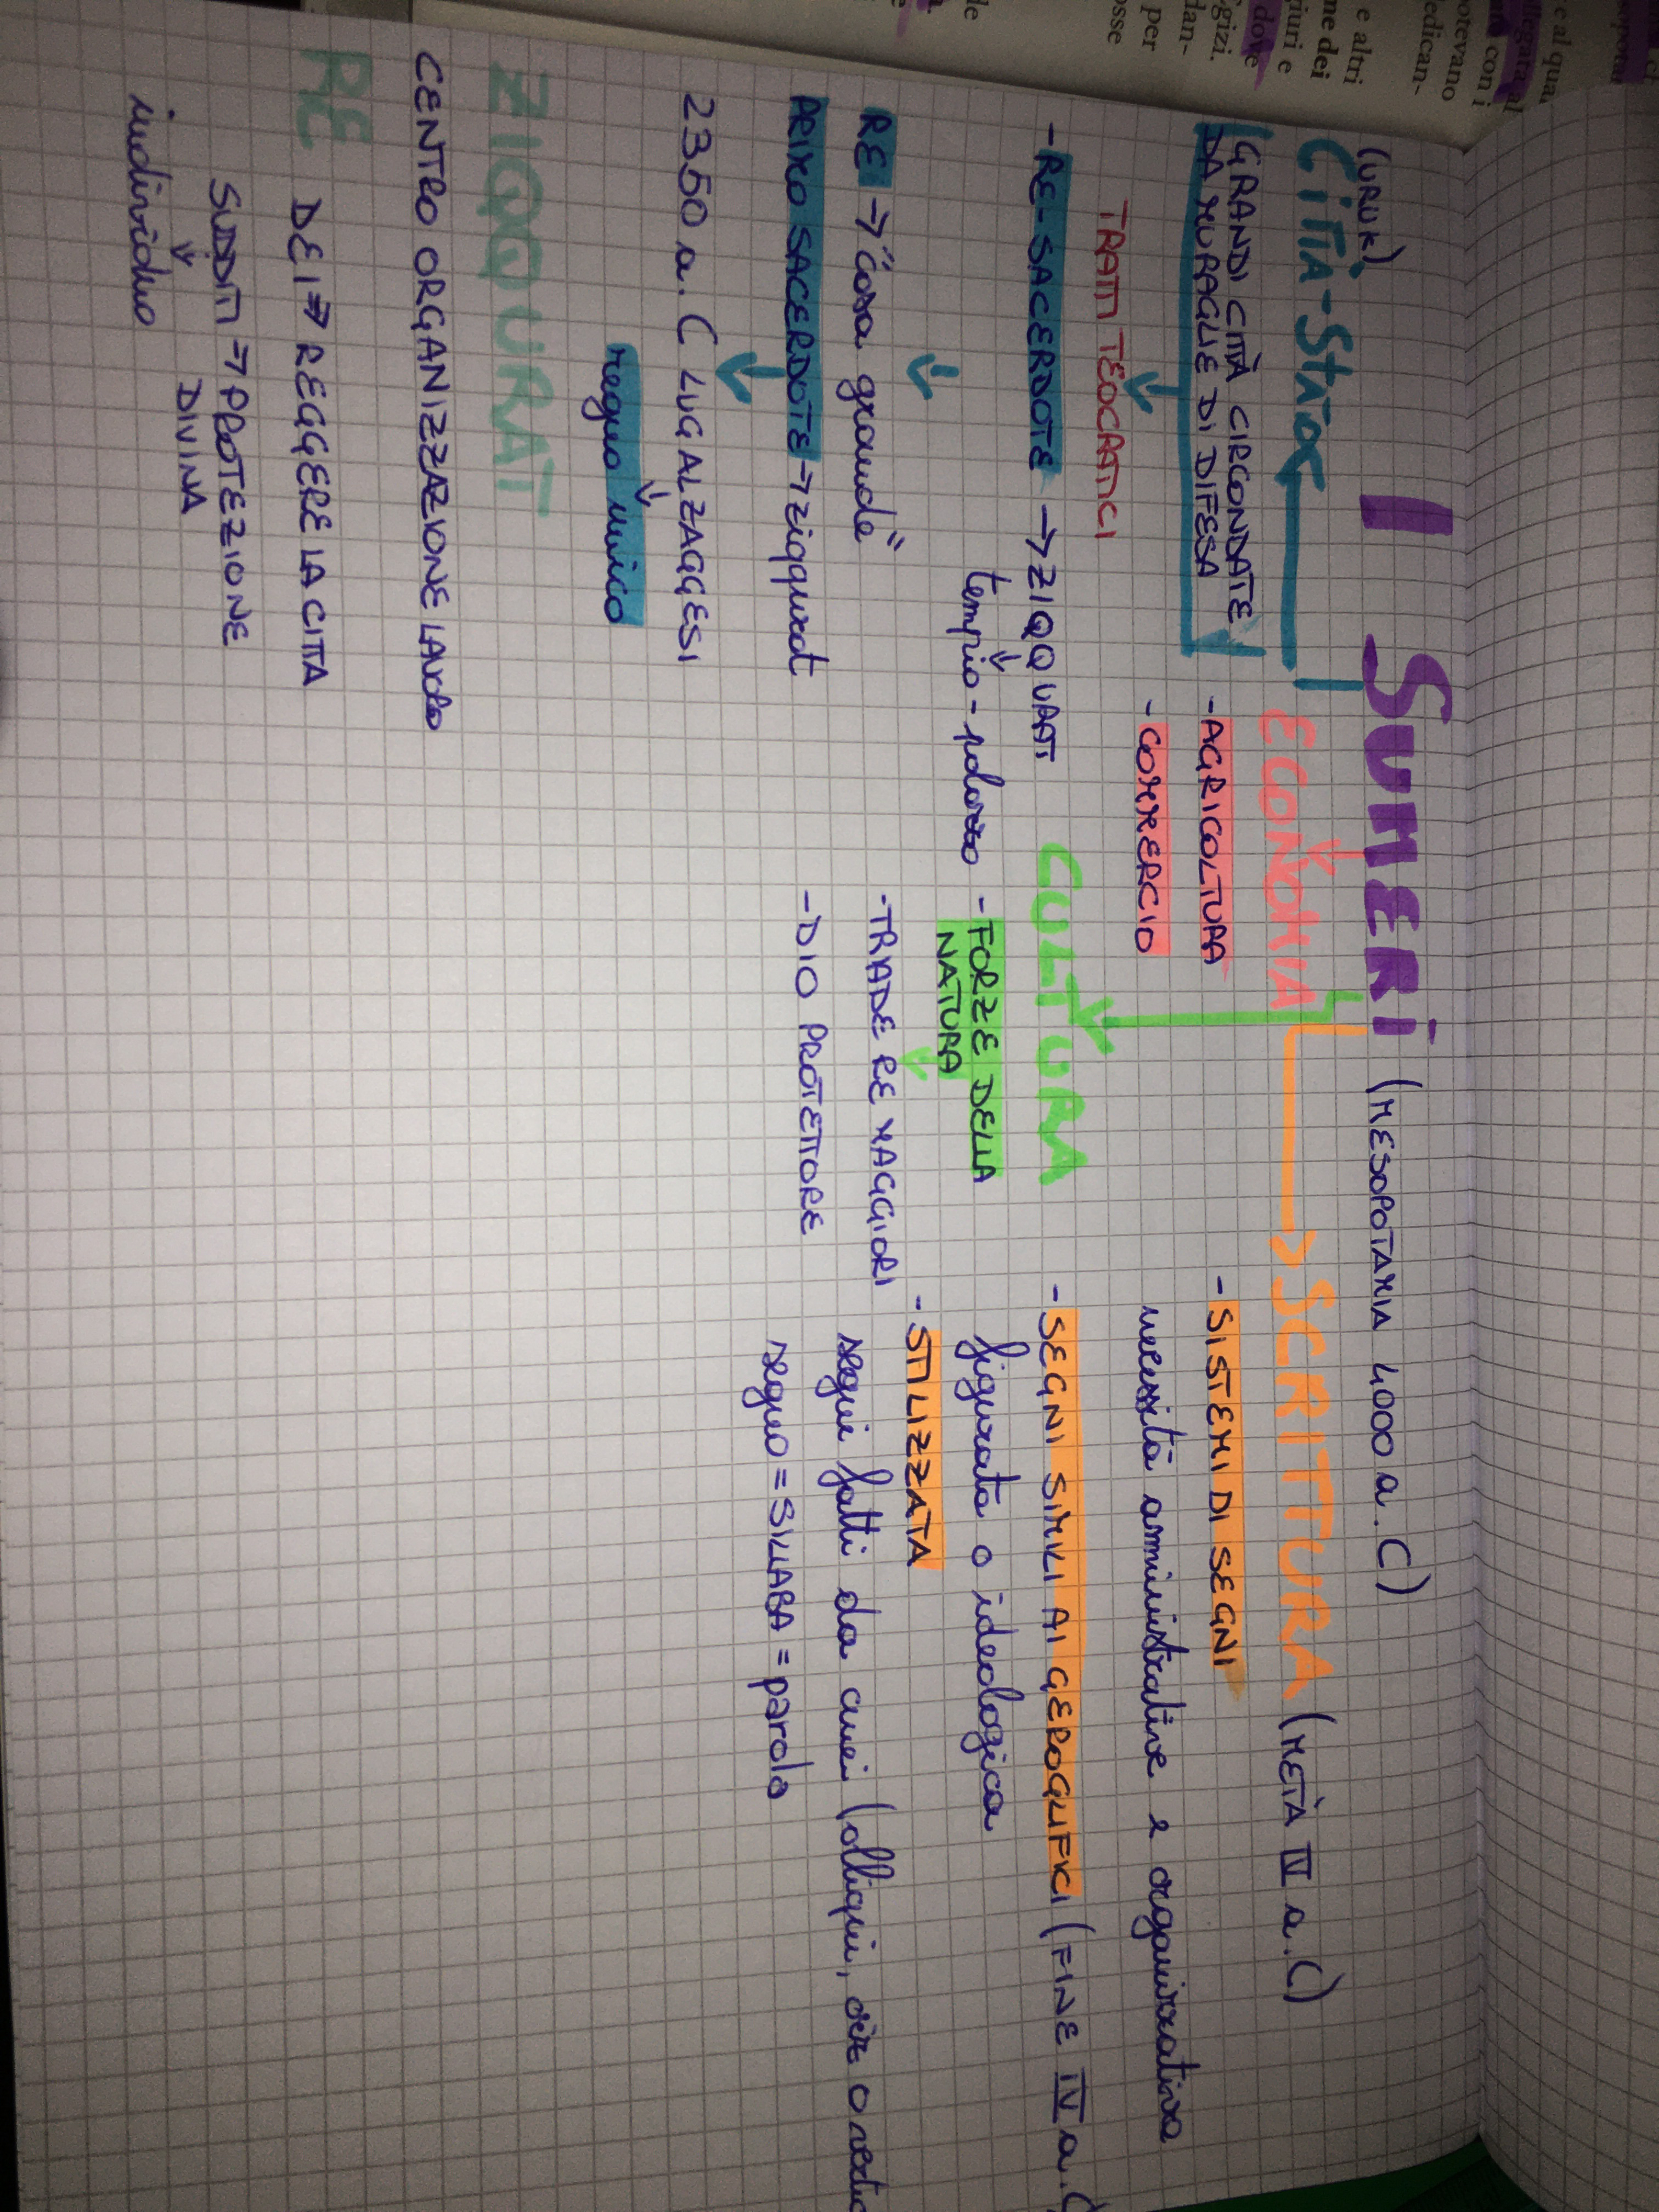 I SUMERI (MESOPOTAMIA 4000 a.C)
(URUK)
CITTÀ-STATO
(GRANDI CITTÀ CIRCONDATE
DA MURAGLIE DI DIFESA
TRATTI TEOCRATICI
-RE-SACERDOTE → ZIQQURAT
tempio-palazzo
RE → "casa grande"
PRIMO SACERDOTE → ziqqurat
2350 a.C LUGALZAGGESI
regno unico
ZIQQURAT
CENTRO ORGANIZZAZIONE LAVORO
RE DEI ⇒ REGGERE LA CITTA
SUDDITI ⇒ PROTEZIONE
DIVINA
individuo
ECONOMIA
-AGRICOLTURA
-COMMERCIO
CULTURA
-FORZE DELLA
NATURA
-TRIADE RE MAGGIORI
-DIO PROTETTORE
SCRITTURA (METÀ IV a.C)
-SISTEMI DI SEGNI
necessità amministrative e organizzativa
-SEGNI SIMILI AI GEROGLIFICI (FINE IV a.C
figurata o ideologica
-STILIZZATA
segni fatti da cunei (obliqui,
segno = SILLABA = parola
e al qua
allegata al
con i
potevano
dedican-
e altri
me dei
giuri e
dove
gizi.
dan-
per
osse
de